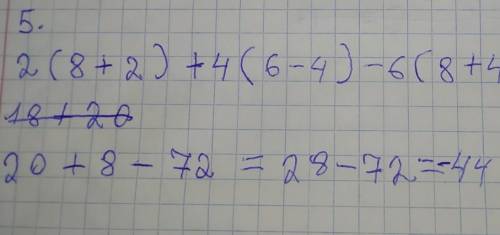 5.
2(8+2)+4(6-4)-6(8+4
18+20
20+8-72=28-72=-44